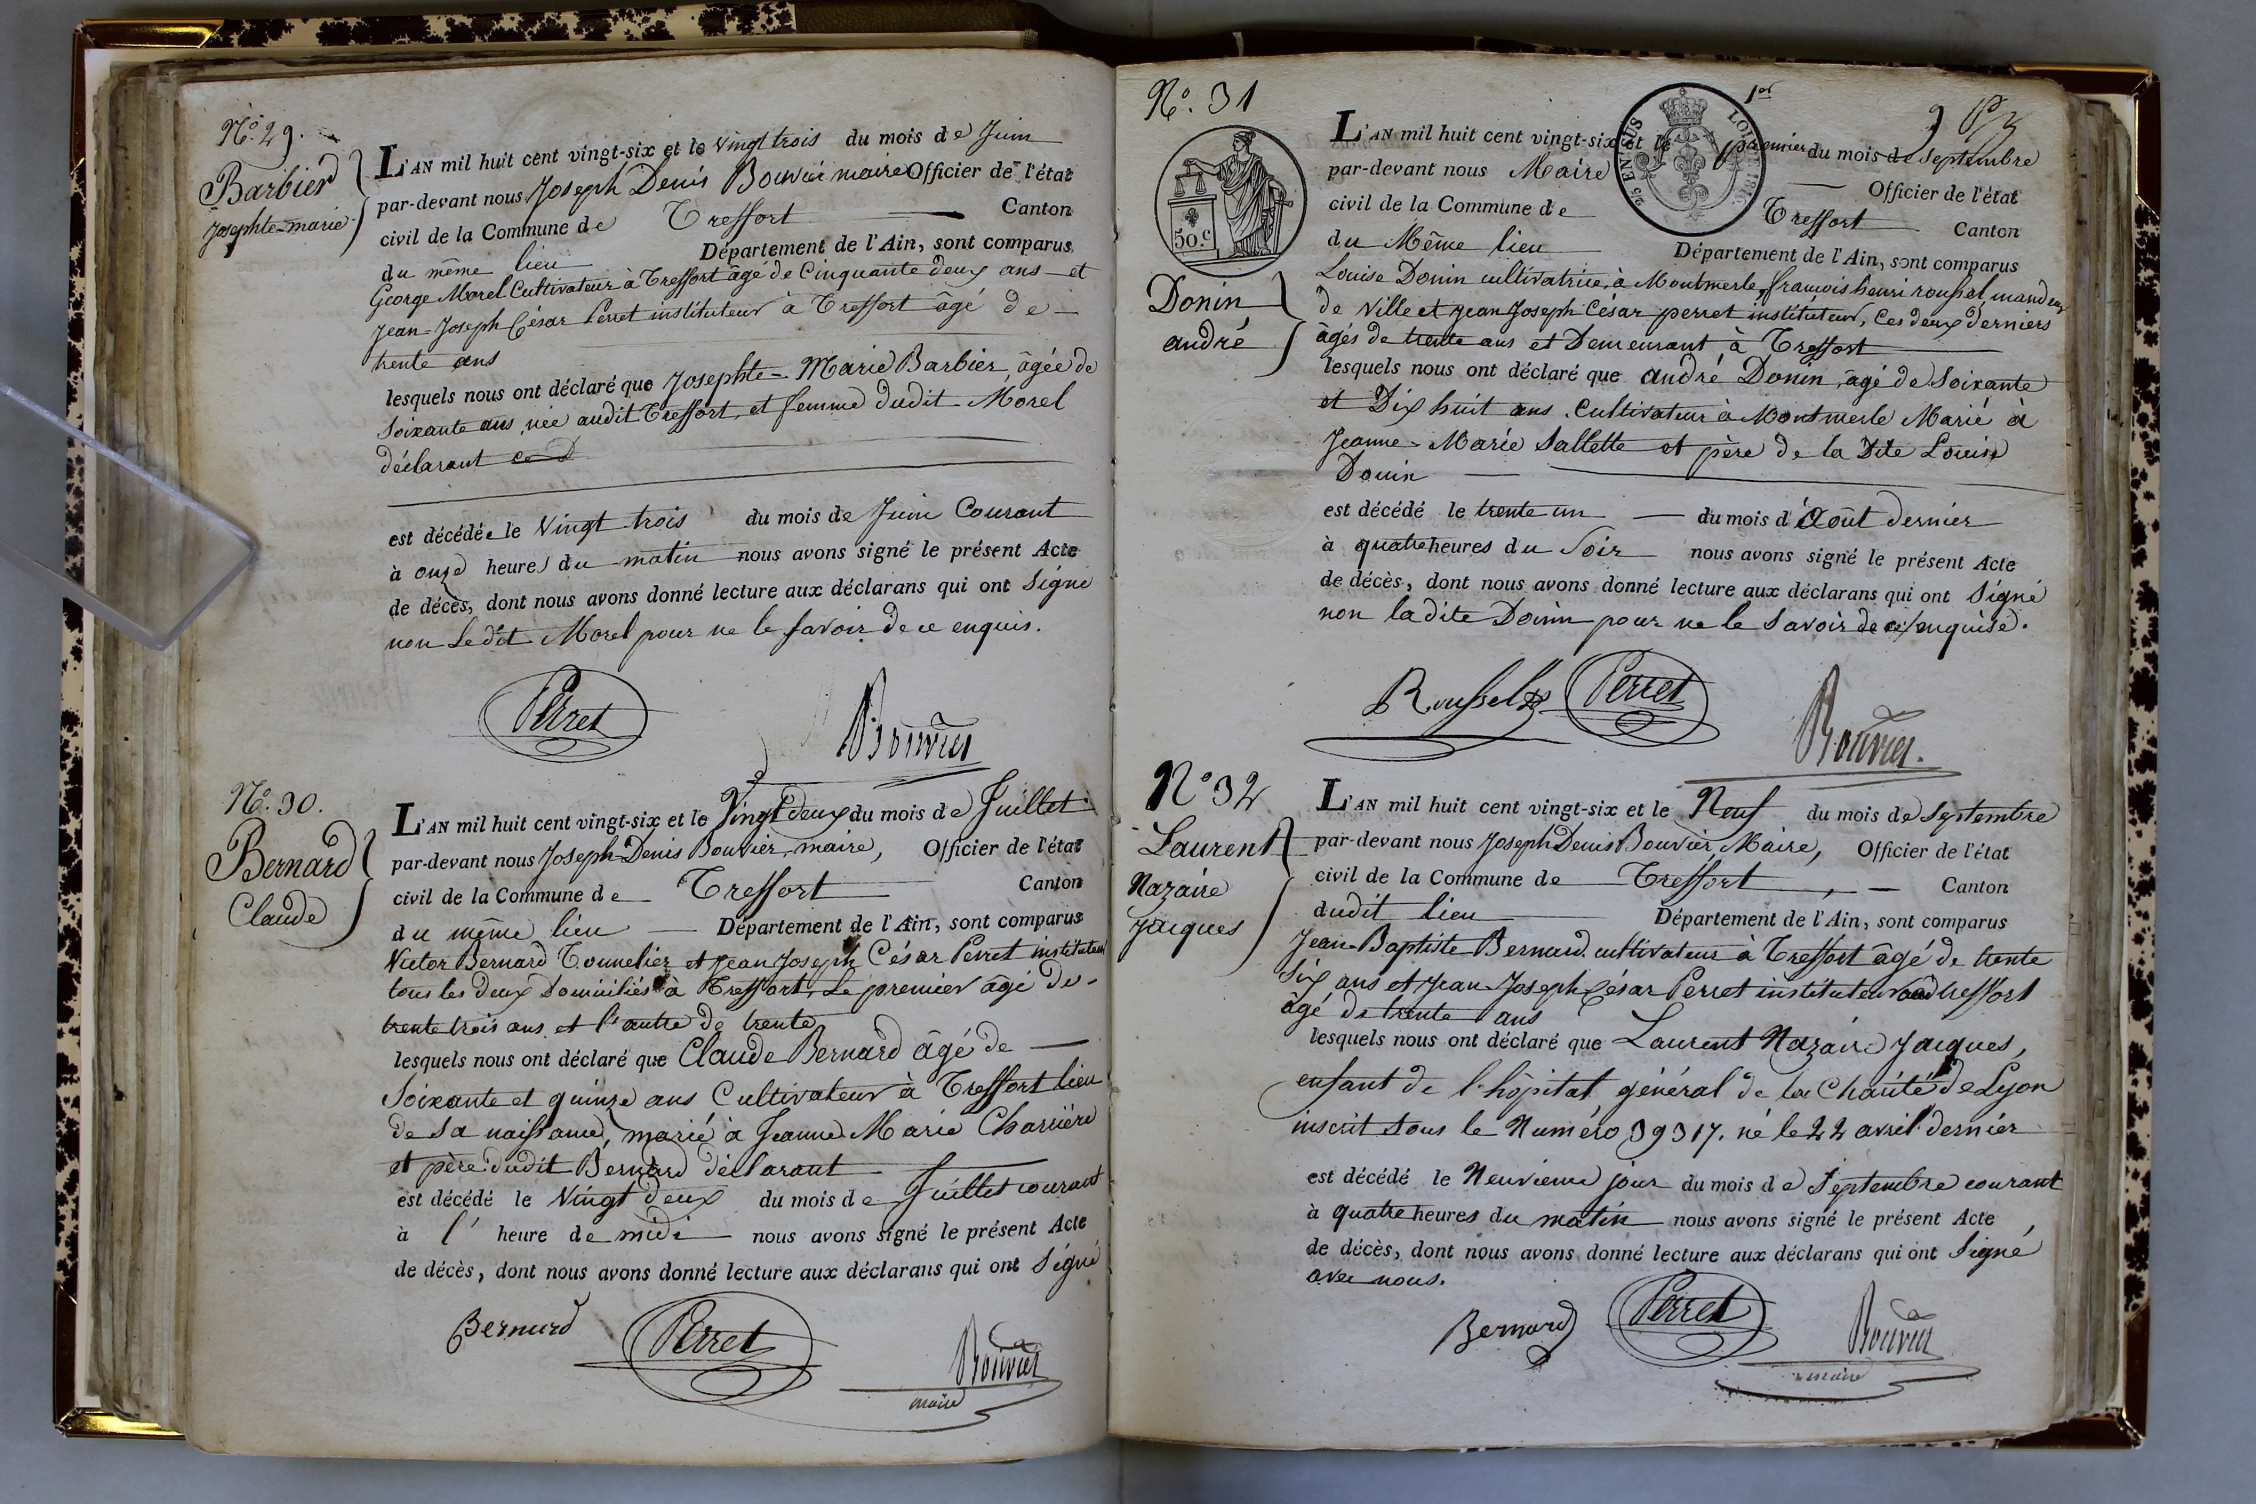 N.° 29.
Barbier
Josephte-marie
L'AN mil huit cent vingt-six et le vingt trois du mois de Juin
par-devant nous Joseph Denis Bouvier maire Officier de l'état
civil de la Commune de Treffort Canton
du même lieu Département de l'Ain, sont comparus
George Morel Cultivateur à Treffort âgé de Cinquante deux ans et
Jean-Joseph César Perret instituteur à Treffort âgé de
trente ans
lesquels nous ont déclaré que Josephte-Marie Barbier, âgée de
Soixante ans, née audit Treffort, et femme dudit Morel
déclarant
est décédée le Vingt trois du mois de Juin Courant
à onze heures du matin nous avons signé le présent Acte
de décès, dont nous avons donné lecture aux déclarans qui ont Signé
non Ledit Morel pour ne le savoir de ce enquis.
Perret Bouvier
N.° 30.
Bernard
Claude
L'AN mil huit cent vingt-six et le Vingt deux du mois de Juillet
par-devant nous Joseph-Denis Bouvier, maire, Officier de l'état
civil de la Commune de Treffort Canton
du même lieu Département de l'Ain, sont comparus
Victor Bernard Tonnelier et Jean Joseph César Perret instituteur
tous les deux Domiciliés à Treffort, Le premier âgé de
trente trois ans et l'autre de trente
lesquels nous ont déclaré que Claude Bernard âgé de
Soixante et quinze ans Cultivateur à Treffort lieu
de sa naissance, marié à Jeanne Marie Charrière
et père dudit Bernard déclarant
est décédé le Vingt deux du mois de Juillet courant
à l' heure de midi nous avons signé le présent Acte
de décès, dont nous avons donné lecture aux déclarans qui ont Signé
Bernard Perret Bouvier
maire
N.° 31
1er
9
50.c
25 EN SUS
LOI DE 1816.
Donin
andré
L'AN mil huit cent vingt-six et le premier du mois de Septembre
par-devant nous Maire Officier de l'état
civil de la Commune de Treffort Canton
du Même lieu Département de l'Ain, sont comparus
Louise Donin cultivatrice à Montmerle, françois henri roussel, mandeur
de Ville et Jean Joseph César perret instituteur, Ces deux derniers
âgés de trente ans et Demeurant à Treffort
lesquels nous ont déclaré que andré Donin, âgé de Soixante
et Dix huit ans Cultivateur à Montmerle Marié à
Jeanne-Marie Sallette et père de la Dite Louise
Donin
est décédé le trente un du mois d'Août dernier
à quatre heures du Soir nous avons signé le présent Acte
de décès, dont nous avons donné lecture aux déclarans qui ont Signé
non la dite Donin pour ne le Savoir de ce enquise.
Roussel Perret Bouvier.
N° 32
Laurent
Nazaire
Jacques
L'AN mil huit cent vingt-six et le Neuf du mois de Septembre
par-devant nous Joseph Denis Bouvier Maire, Officier de l'état
civil de la Commune de Treffort, Canton
dudit lieu Département de l'Ain, sont comparus
Jean-Baptiste Bernard cultivateur à Treffort âgé de trente
Six ans et Jean-Joseph César Perret instituteur aud treffort
âgé de trente ans
lesquels nous ont déclaré que Laurent Nazaire Jacques,
enfant de l'hôpital général de la Charité de Lyon
inscrit sous le Numéro 39317. né le 22 avril dernier
est décédé le Neuvieme jour du mois de Septembre courant
à quatre heures du matin nous avons signé le présent Acte
de décès, dont nous avons donné lecture aux déclarans qui ont Signé
avec nous.
Bernard Perret Bouvier
maire